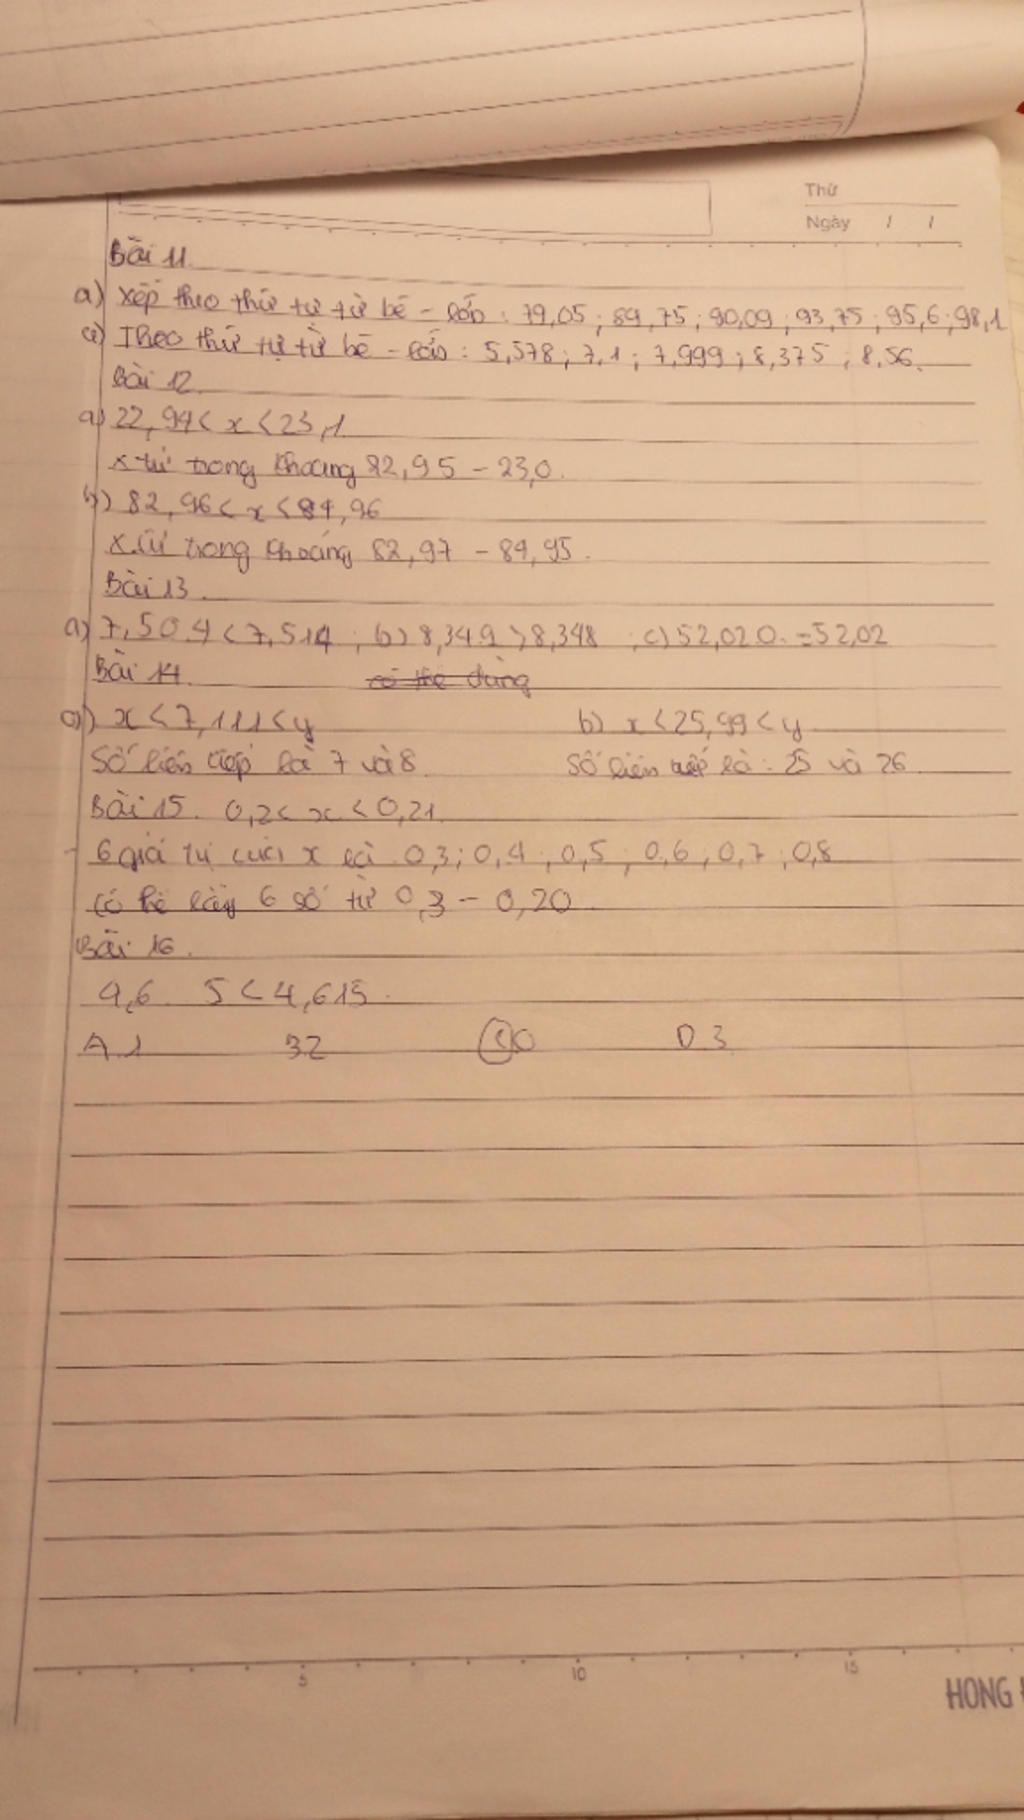 Thứ
Ngày / /
Bài 11.
a) xếp theo thứ tự từ bé - lớn: 79,05; 89,75; 90,09; 93,75; 95,6; 98,1
Theo thứ tự từ bé - lớn: 5,578; 7,1; 7,999; 8,375; 8,56.
Bài 12.
a) 22,94 < x < 23,1
x từ trong khoảng 82,95 - 23,0.
b) 82,96 < x < 84,96
x từ trong khoảng 82,97 - 84,95.
Bài 13.
a) 7,504 < 7,514; b) 8,349 > 8,348; c) 52,020 = 52,02
Bài 14. có thể dùng
a) x < 7,111 < y b) x < 25,99 < y
Số liên tiếp là 7 và 8 Số liên tiếp là: 25 và 26
Bài 15. 0,2 < x < 0,21
- 6 giá trị của x là 0,3; 0,4; 0,5; 0,6; 0,7; 0,8
Có 6 số từ 0,3 - 0,20
Bài 16.
4,6 5 < 4,615.
A 1 B 2 C 0 D 3
5 10 15
HONG